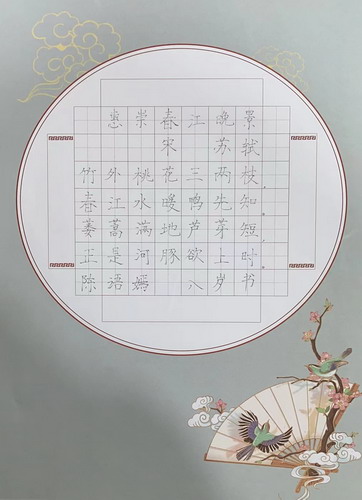 惠崇春江晚景
宋 苏轼
竹外桃花三两枝
春江水暖鸭先知
蒌蒿满地芦芽短
正是河豚欲上时
陈语嫣 八岁书